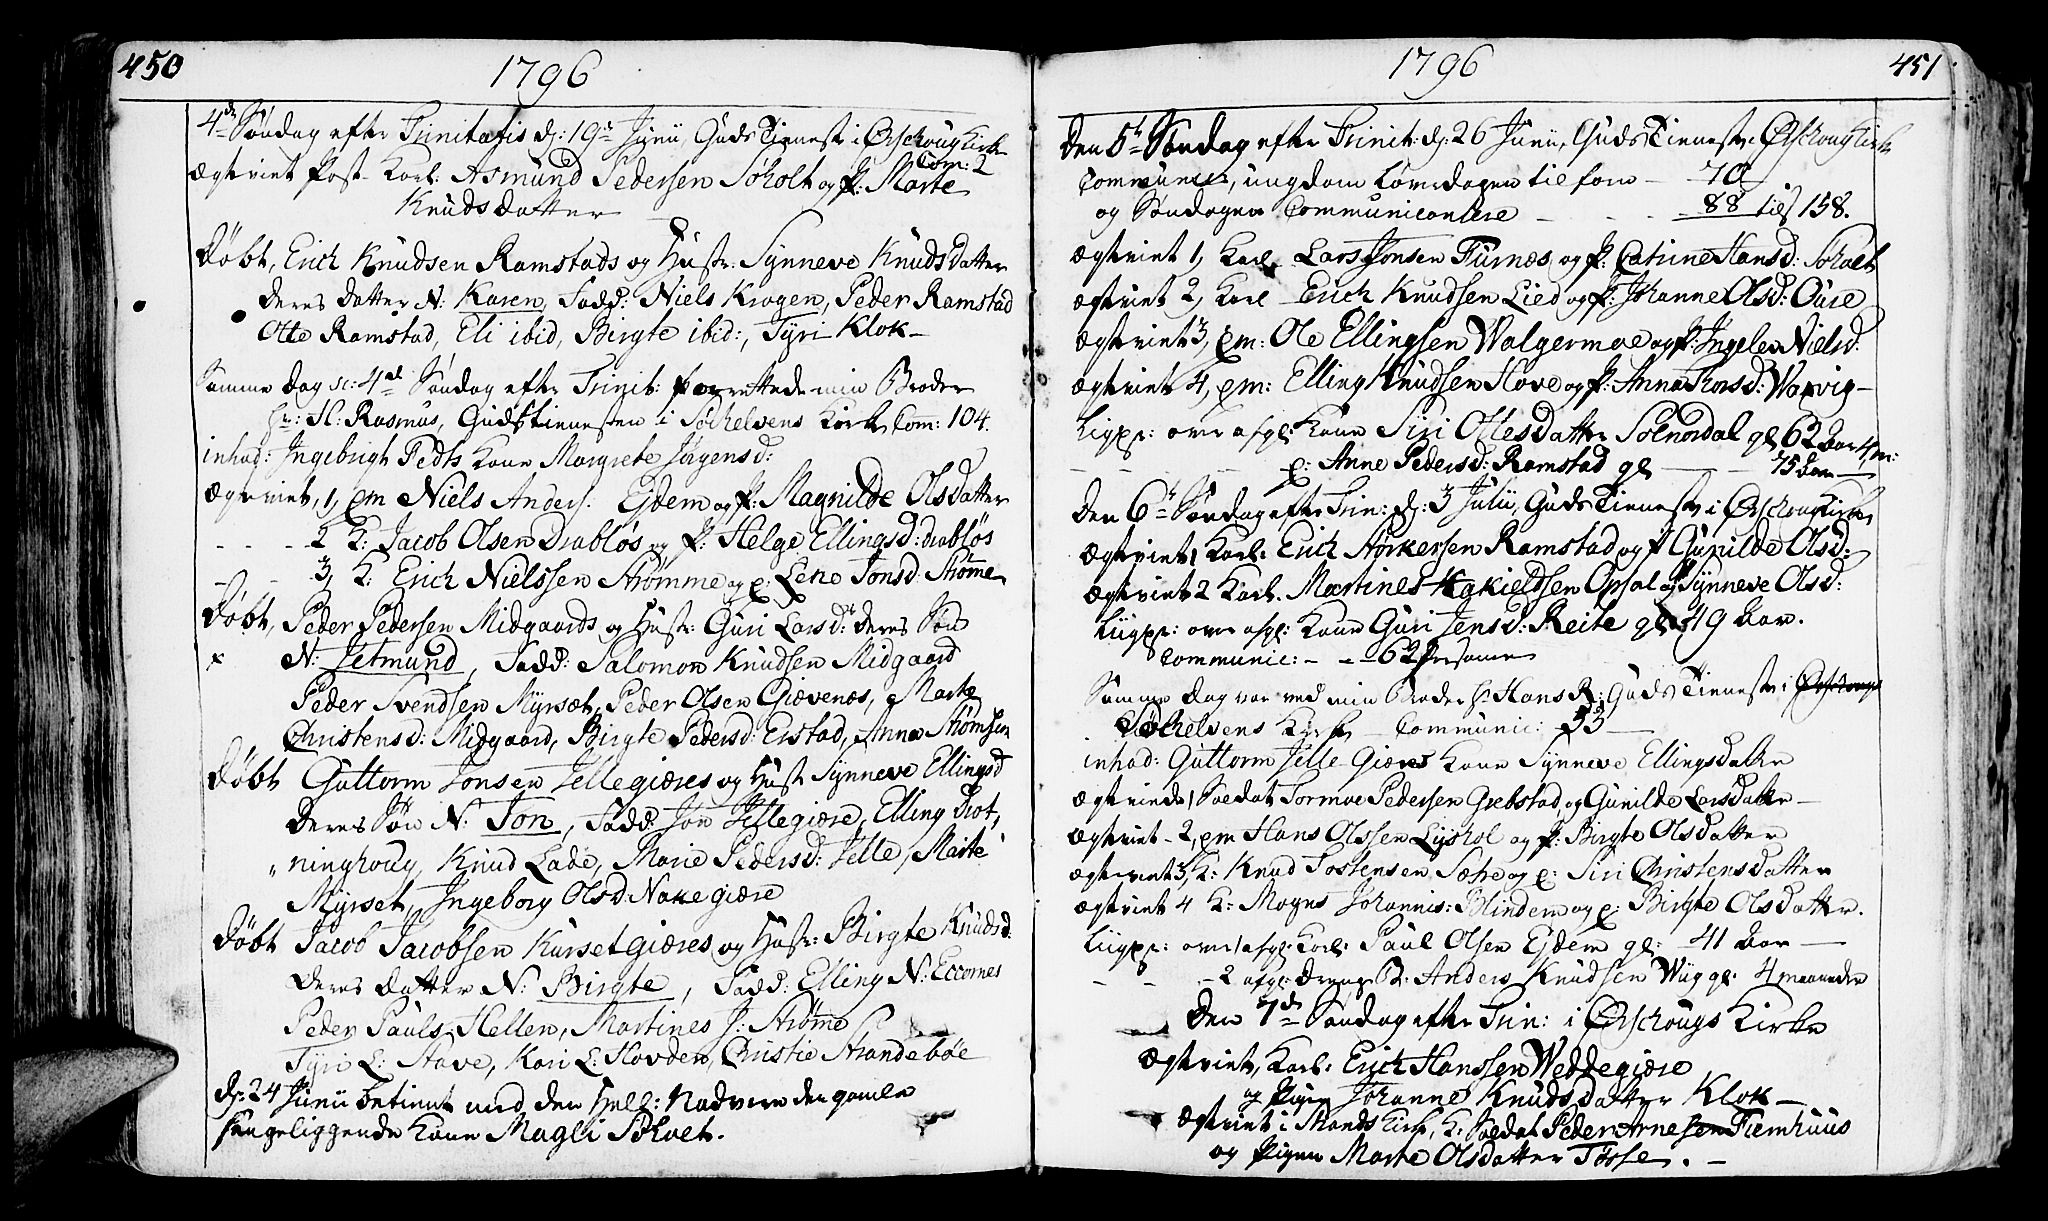 450
1796
4de Søndag efter Trinitatis d: 19de Junii Guds Tieneste i Ørschoug Kirke
Com: 2
Ægtviet Post Karl: Asmund Pedersen Søholt og P: Marte
Knudsdatter
Døbt, Erich Knudsen Ramstads og Hustr: Synneve Knudsdatter
Deres Datter N: Karen, Fadd: Niels Krogen, Peder Ramstad
Otte Ramstad, Eli ibid, Birgte ibid:, Tyri Klok
Samme Dag sc: 4de Søndag efter Trinit: forrettede min Broder
Hr: H: Rasmus, Gudstienesten i Søchelvens Kirke Com: 104.
inhad: Ingebrigh Peds Kone Margrete Jørgensd:
Ægtviet, 1, em Niels Anders: Ejdem og P: Magnilde Olsdatter
2 K: Jacob Olsen Drabløs og P: Helge Ellingsd: Drabløs
3, K: Erich Nielssen Strømme og p: Lene Jonsd: Strømme
Døbt, Peder Pedersen Midgaards og Hustr: Guri Larsd: Deres Søn
x N: Jetmund, Fadd: Salomon Knudsen Midgaard
Peder Svendsen Myrset, Peder Olsen Giævenes, Marte
Christensd: Midgaard, Birgte Pedersd: Erstad, Anne Strømsen
Døbt Guttorm Jonsen Jellegiæres og Hustr Synneve Ellingsd
Deres Søn N: Jon, Fadd: Jon Jellegiære, Elling Drot,
"ninghoug, Knud Lade, Marie Pedersd: Jelle, Marte
Myrset, Ingeborg Olsd: Nakegiære
Døbt Jacob Jacobsen Kursetgiæres og Hustr: Birgte Knudsd:
Deres Datter N: Birgte, Fadd: Elling N: Eccornes
Peder Pauls: Hellen, Martines J: Strømme
Tyri L: Stave, Kari L: Hovden, Christie Strandebøe
d: 24 Junii betient med den Hell: Nadvere den gamle
sengeliggende Kone Magli Søholt.
1796
451
Den 5te Søndag efter Trinit: d: 26 Junii, Guds Tieneste Ørschoug Kirke
Communic:, ungdom Løverdagen tilforn 70
og Søndagen Communicantere 88 tils 158.
Ægtviet 1, Karl Lars Jonsen Furnæs og P: Catrine Hansd: Søholt
Ægtviet 2, Karl Erich Knudsen Lied og P: Johanne Olsd: Oure
Ægtviet 3, em: Ole Ellingsen Walgermoe og P: Ingeler Nielsd:
Ægtviet 4, em: Elling Knudsen Hove og P: Anne Thorsd: Warvig
Ligpr: over afgl: Kone Siri Ottesdatter Solnørdal gl 62 Aar 4 m:
p: Anne Pedersd: Ramstad gl 75 Aar
Den 6te Søndag efter Trin: d: 3 Julii, Guds Tieneste i Ørschoug Kirke
Ægtviet 1 Karl: Erich Størkersen Ramstad og P Gunilde Olsd:
Ægtviet 2 Karl. Martines Hakieldsen Opsal og Synneve Olsd:
Liigpr: over afgl: Kone Guri Jensd: Reite gl: 49 Aar.
Communic: 62 Personer
Samme Dag var ved min Broder Hr Hans R: Guds Tieneste i Ørschoug
Søchelvens Kirke Communic: 53
inhad: Guttorm Jelle Giæres Kone Synneve Ellingsdatter
Ægtviede 1 Soldat Tormoe Pedersen Grebstad og Gunilde Larsdatter
Ægtviet 2, em Hans Olssen Lyshol og P: Birgte Olsdatter
Ægtviet 3, K: Knud Tostensen Sætre og p: Siri Christensdatter
Ægtviet 4 K: Mogns Johannis: Blindem og p: Birgte Olsdatter.
Liigpr: over 1 afgl: Karl: Paul Olsen Ejdem gl: 41 Aar
2 afgl: Drenge B: Anders Knudsen Wiig gl: 4 maaneder
Den 7de Søndag efter Trin: i Ørschougs Kirke
Ægtviet, Karl: Erich Hanssen Weddegiære
og Pigen Johanne Knudsdatter Klok
Ægtviet i Strands Kirke, K: Soldat Peder Arnesen Fiemhuus
og Pigen Marte Olsdatter Tøsse.